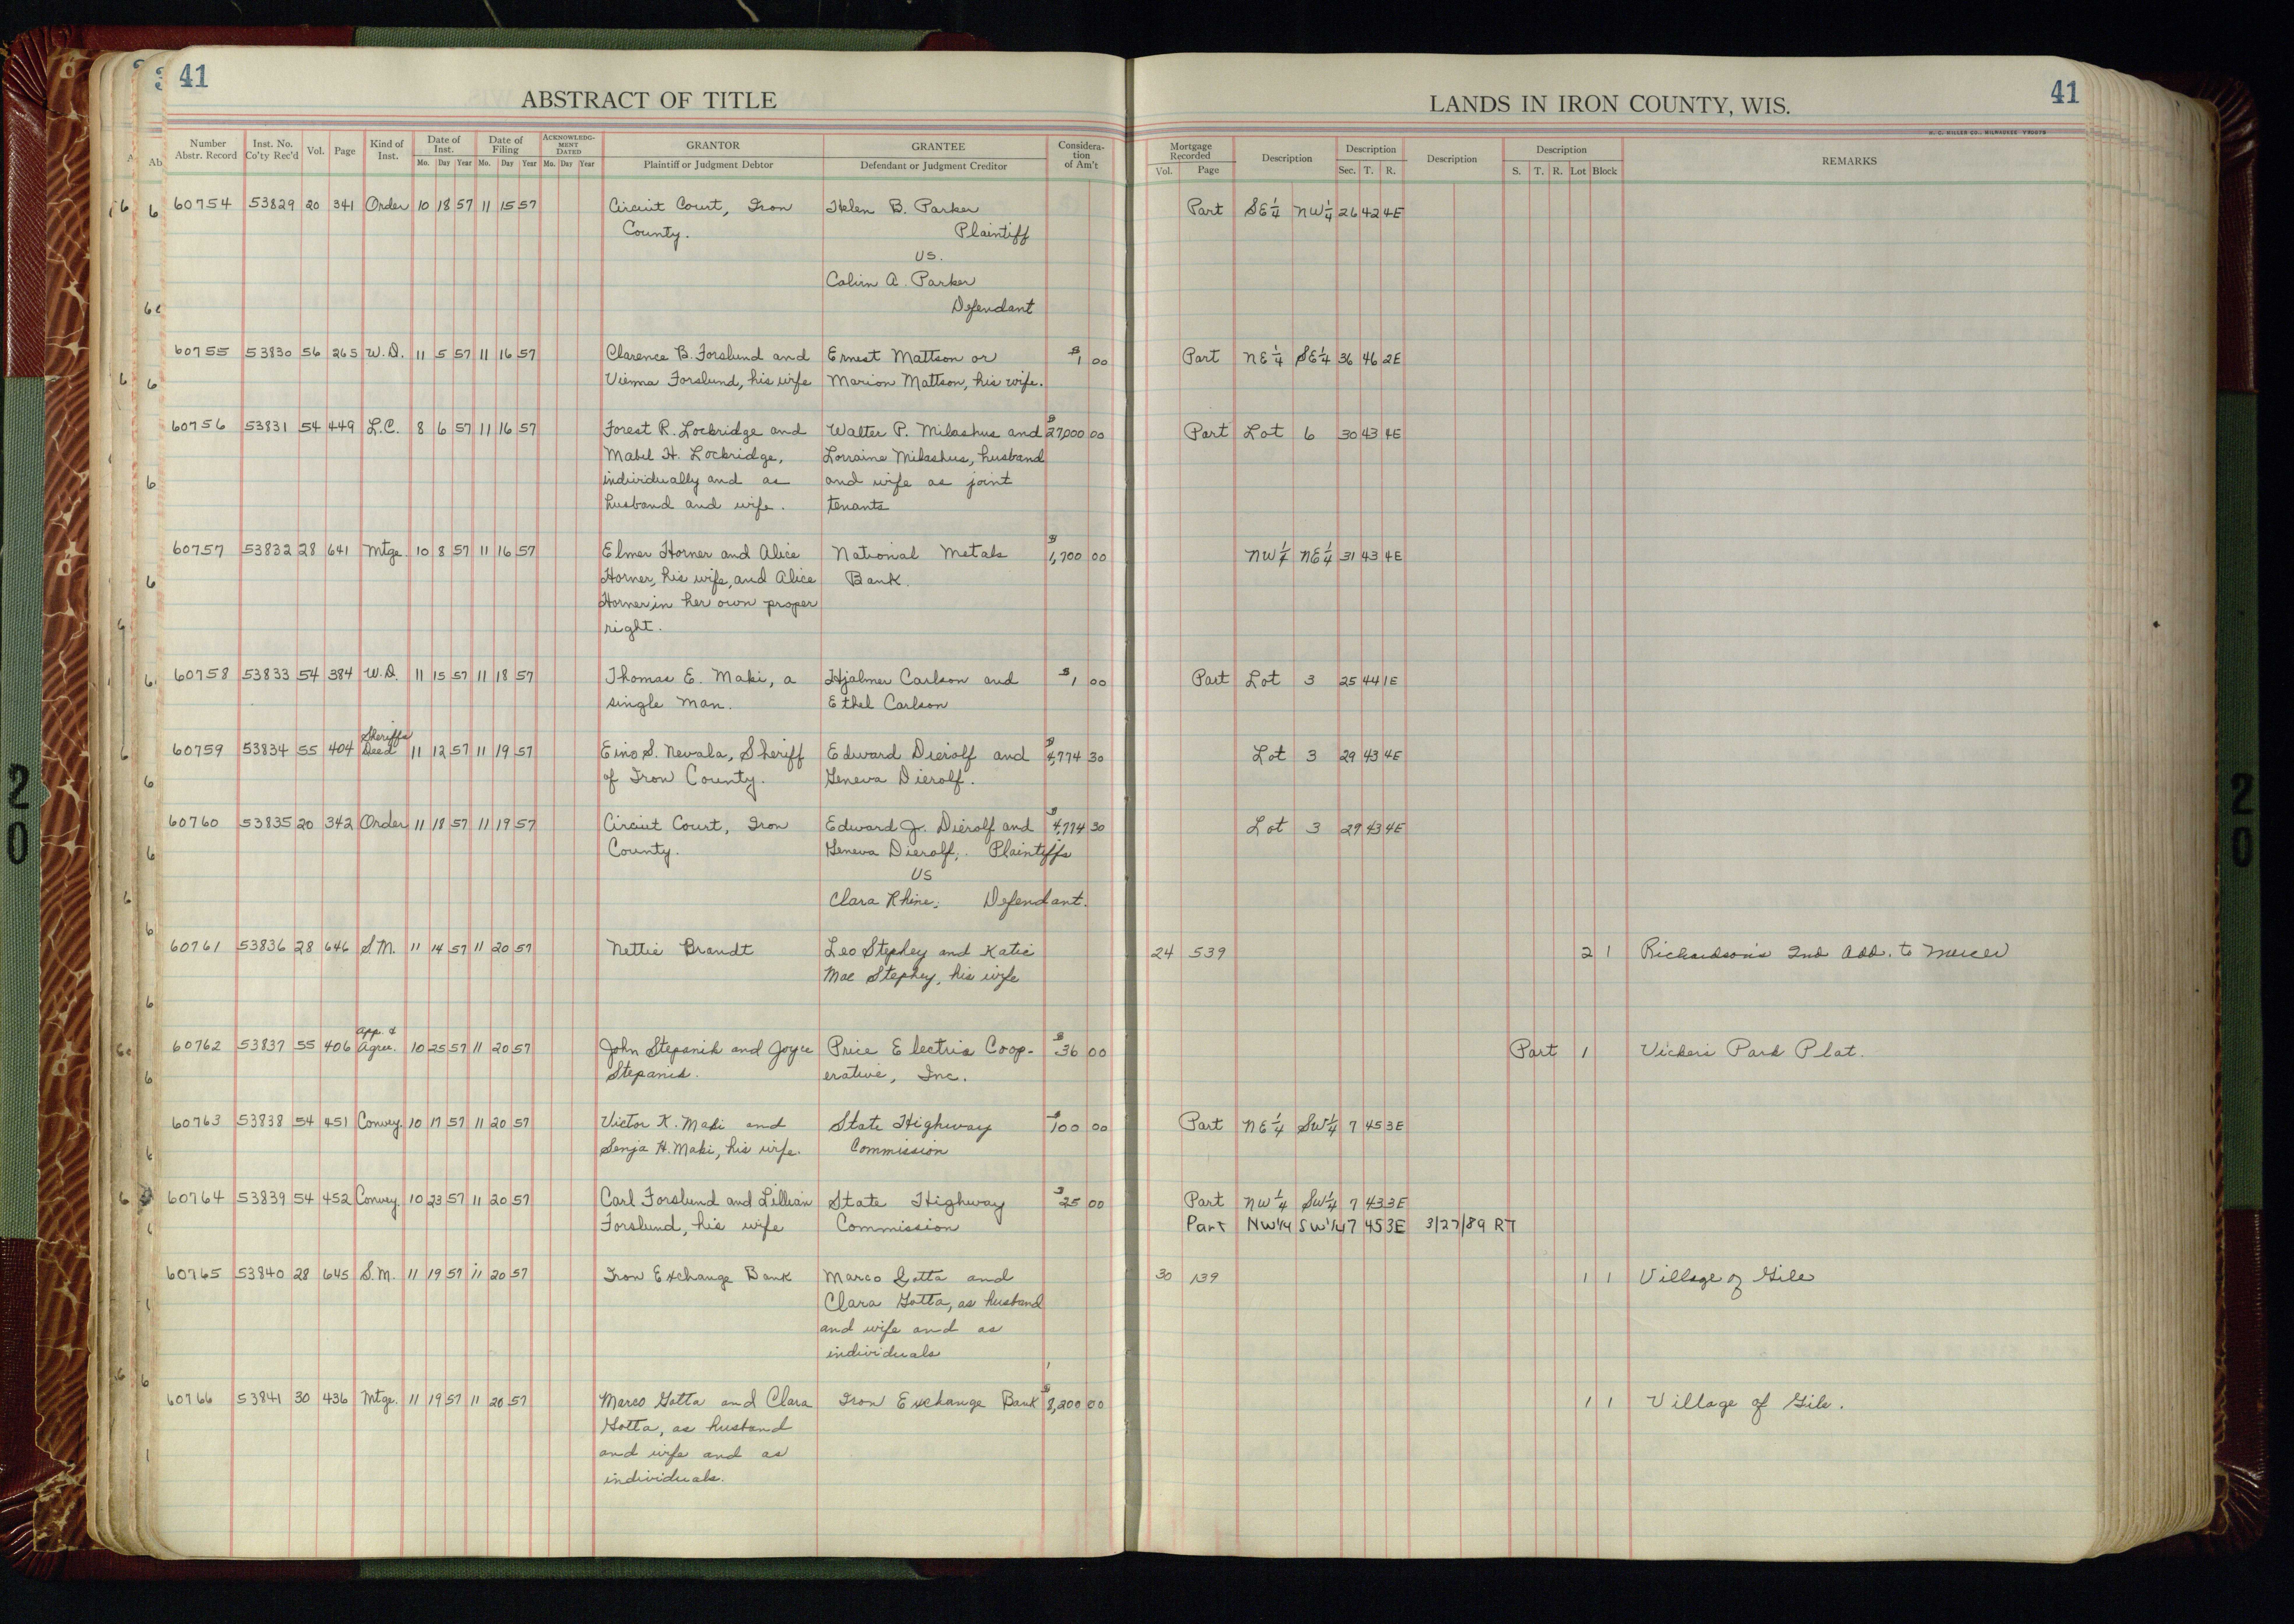 41
ABSTRACT OF TITLE
LANDS IN IRON COUNTY, WIS.
41
H. C. MILLER CO., MILWAUKEE
Number Abstr. Record | Inst. No. Co'ty Rec'd | Vol. | Page | Kind of Inst. | Date of Inst. Mo. Day Year | Date of Filing Mo. Day Year | ACKNOWLEDGMENT DATED Mo. Day Year | GRANTOR Plaintiff or Judgment Debtor | GRANTEE Defendant or Judgment Creditor | Consideration of Am't | Mortgage Recorded Vol. Page | Description | Description Sec. T. R. | Description | Description S. T. R. Lot Block | REMARKS
60754 53829 20 341 Order 10 18 57 11 15 57 Circuit Court, Iron Helen B. Parker Part SE¼ NW¼ 26 42 4E
County. Plaintiff
vs.
Calvin A. Parker
Defendant
60755 53830 56 265 W.D. 11 5 57 11 16 57 Clarence B. Forslund and Ernest Mattson or $1 00 Part NE¼ SE¼ 36 46 2E
Vienna Forslund, his wife Marion Mattson, his wife.
60756 53831 54 449 L.C. 8 6 57 11 16 57 Forest R. Lockridge and Walter P. Milashus and $27,000 00 Part Lot 6 30 43 4E
Mabel H. Lockridge, Lorraine Milashus, husband
individually and as and wife as joint
husband and wife. tenants
60757 53832 28 641 Mtge. 10 8 57 11 16 57 Elmer Horner and Alice National Metals $1,700 00 NW¼ NE¼ 31 43 4E
Horner, his wife, and Alice Bank.
Horner in her own proper
right.
60758 53833 54 384 W.D. 11 15 57 11 18 57 Thomas E. Maki, a Hjalmer Carlson and $1 00 Part Lot 3 25 44 1E
single man. Ethel Carlson
60759 53834 55 404 Sheriffs Deed 11 12 57 11 19 57 Eino S. Nevala, Sheriff Edward Dierolf and $4,774 30 Lot 3 29 43 4E
of Iron County. Geneva Dierolf.
60760 53835 20 342 Order 11 18 57 11 19 57 Circuit Court, Iron Edward J. Dierolf and $4,774 30 Lot 3 29 43 4E
County. Geneva Dierolf, Plaintiffs
vs
Clara Rhine, Defendant.
60761 53836 28 646 S.M. 11 14 57 11 20 57 Nettie Brandt Leo Stephey and Katie 24 539 2 1 Richardson's 2nd Add. to Mercer
Mae Stephey, his wife
60762 53837 55 406 App. & Agree. 10 25 57 11 20 57 John Stepanik and Joyce Price Electric Coop- $36 00 Part 1 Vicker's Park Plat.
Stepanik. erative, Inc.
60763 53838 54 451 Convey. 10 17 57 11 20 57 Victor K. Maki and State Highway $100 00 Part NE¼ SW¼ 7 45 3E
Senja H. Maki, his wife. Commission
60764 53839 54 452 Convey 10 23 57 11 20 57 Carl Forslund and Lillian State Highway $25 00 Part NW¼ SW¼ 7 43 3E
Forslund, his wife Commission Part NW¼ SW¼ 7 45 3E 3/27/89 RT
60765 53840 28 645 S.M. 11 19 57 11 20 57 Iron Exchange Bank Marco Gotta and 30 139 1 1 Village of Gile
Clara Gotta, as husband
and wife and as
individuals
60766 53841 30 436 Mtge. 11 19 57 11 20 57 Marco Gotta and Clara Iron Exchange Bank $8,200 00 1 1 Village of Gile.
Gotta, as husband
and wife and as
individuals.
20
20